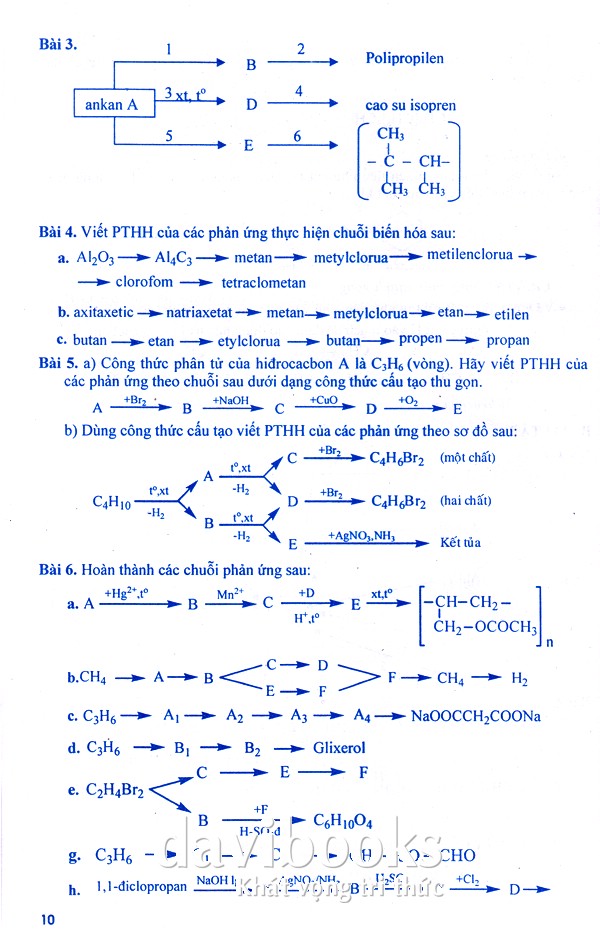 Bài 3.
1 2
B Polipropilen
ankan A 3 xt, t° D 4 cao su isopren
5 E 6
CH₃
– C – CH–
CH₃ CH₃
Bài 4. Viết PTHH của các phản ứng thực hiện chuỗi biến hóa sau:
a. Al₂O₃ → Al₄C₃ → metan → metylclorua → metilenclorua →
→ clorofom → tetraclometan
b. axitaxetic → natriaxetat → metan → metylclorua → etan → etilen
c. butan → etan → etylclorua → butan → propen → propan
Bài 5. a) Công thức phân tử của hiđrocacbon A là C₃H₆ (vòng). Hãy viết PTHH của
các phản ứng theo chuỗi sau dưới dạng công thức cấu tạo thu gọn.
A +Br₂ → B +NaOH → C +CuO → D +O₂ → E
b) Dùng công thức cấu tạo viết PTHH của các phản ứng theo sơ đồ sau:
C +Br₂ → C₄H₆Br₂ (một chất)
A t°,xt -H₂
C₄H₁₀ t°,xt -H₂ D +Br₂ → C₄H₆Br₂ (hai chất)
B t°,xt -H₂
E +AgNO₃,NH₃ → Kết tủa
Bài 6. Hoàn thành các chuỗi phản ứng sau:
a. A +Hg²⁺,t° → B Mn²⁺ → C +D H⁺,t° → E xt,t° → –CH–CH₂–
CH₂–OCOCH₃ n
b. CH₄ → A → B C → D F → CH₄ → H₂
E → F
c. C₃H₆ → A₁ → A₂ → A₃ → A₄ → NaOOCCH₂COONa
d. C₃H₆ → B₁ → B₂ → Glixerol
e. C₂H₄Br₂ C → E → F
B +F → C₆H₁₀O₄
davibooks
g. C₃H₆ → CHO
h. 1,1-điclopropan NaOH B +Cl₂ → D →
Khát vọng tri thức
10